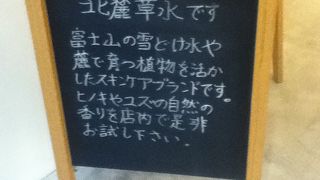 北麓草水です
富士山の雪どけ水や
麓で育つ植物を活か
したスキンケアブランドです。
ヒノキやユズの自然の
香りを店内で是非
お試し下さい。